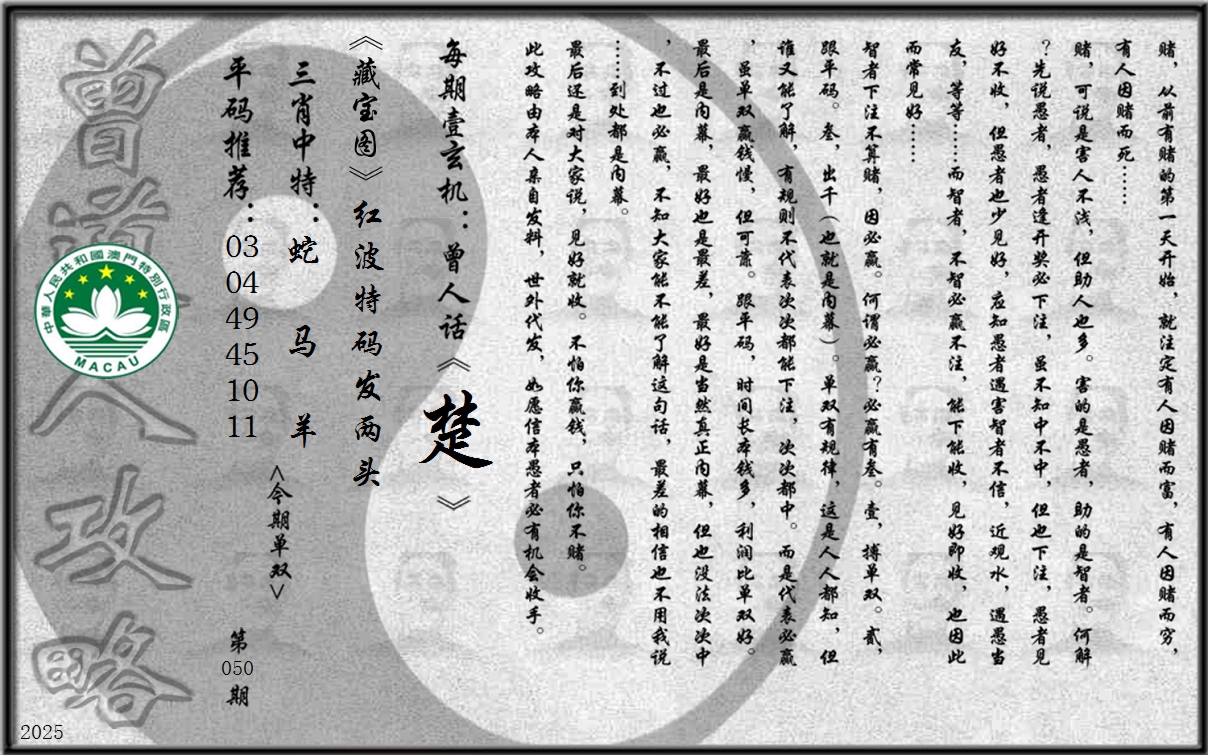 赌，从前有赌的第一天开始，就注定有人因赌而富，有人因赌而穷，
有人因赌而死……
赌，可说是害人不浅，但助人也多。害的是愚者，助的是智者。何解
？先说愚者，愚者逢开奖必下注，虽不知中不中，但也下注，愚者见
好不收，但愚者也少见好，应知愚者遇害智者不信，近观水，遇愚当
友，等等……而智者，不智必赢不注，能下能收，见好即收，也因此
而常见好……
智者下注不算赌，因必赢。何谓必赢？必赢有叁。壹，搏单双。贰，
跟平码。叁，出千（也就是内幕）。单双有规律，这是人人都知，但
谁又能了解，有规则不代表次次都能下注，次次都中。而是代表必赢
，虽单双赢钱慢，但可靠。跟平码，时间长本钱多，利润比单双好。
最后是内幕，最好也是最差，最好是当然真正内幕，但也没法次次中
，不过也必赢，不知大家能不能了解这句话，最差的相信也不用我说
……到处都是内幕。
最后还是对大家说，见好就收。不怕你赢钱，只怕你不赌。
此攻略由本人亲自发料，世外代发，如愿信本愚者必有机会收手。
每期壹玄机：曾人话《楚》
《藏宝图》红波特码发两头
三肖中特：蛇 马 羊
<今期单双>
平码推荐：03 04 49 45 10 11
第050期
曾道人攻略
中華人民共和國澳門特別行政區
MACAU
2025